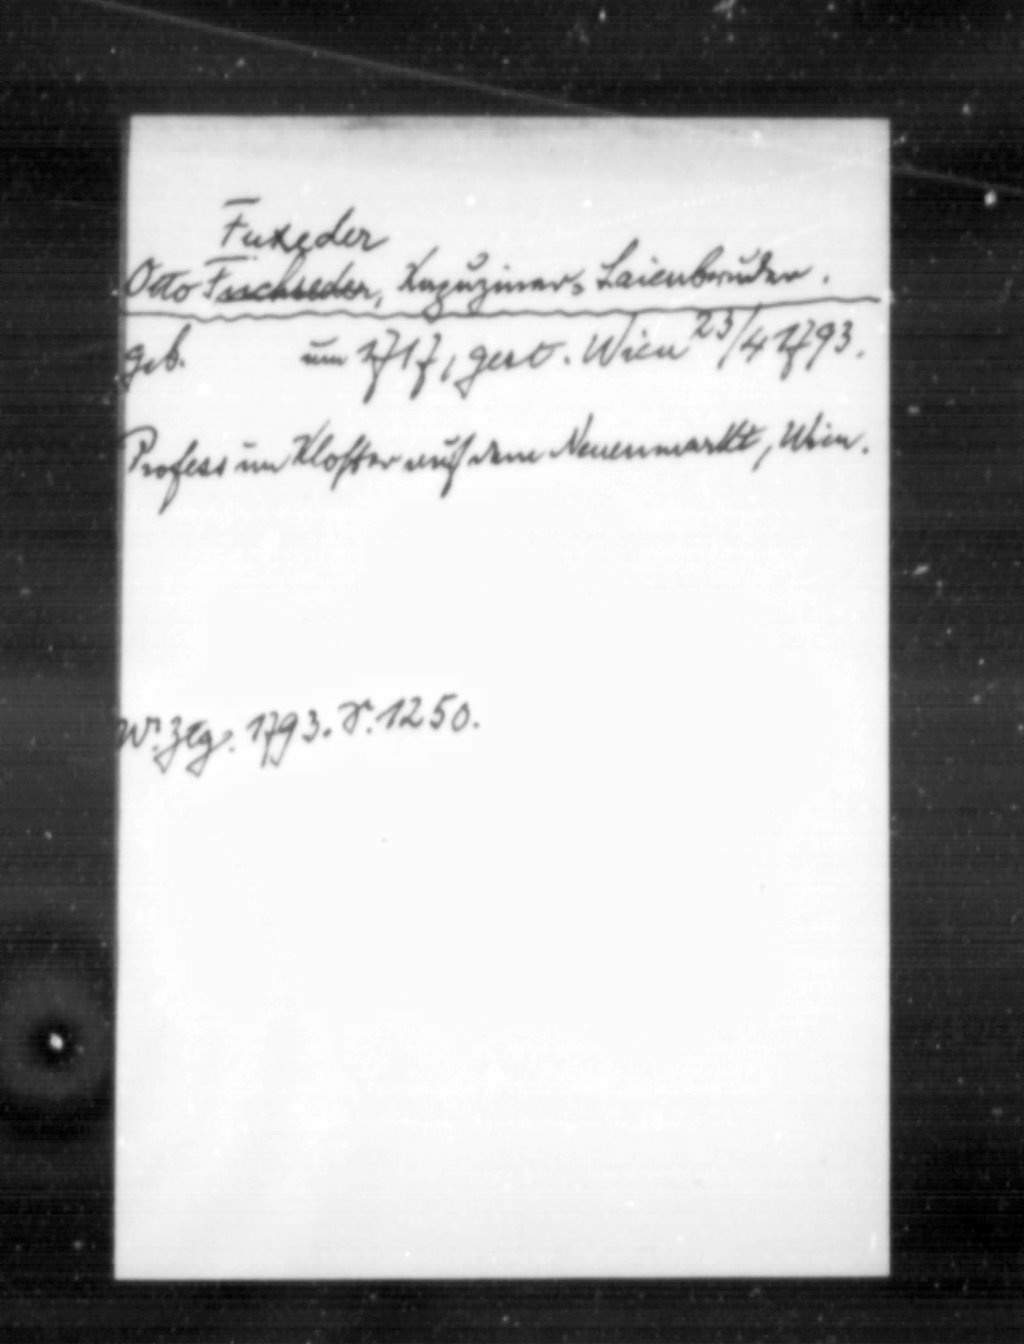 Fuxeder
Otto Fuchseder, Kapuziner-Laienbruder.
geb. um 1717, gest. Wien 23/4 1793.
Profess im Kloster auf dem Neuenmarkt, Wien.
Wr. Ztg. 1793. S. 1250.